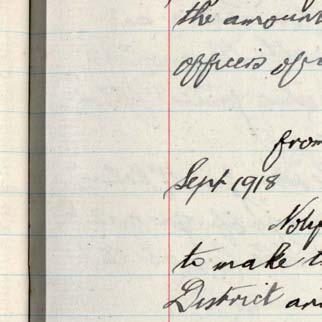 the amount
officers of
from
Sept 1918
to make t
District an